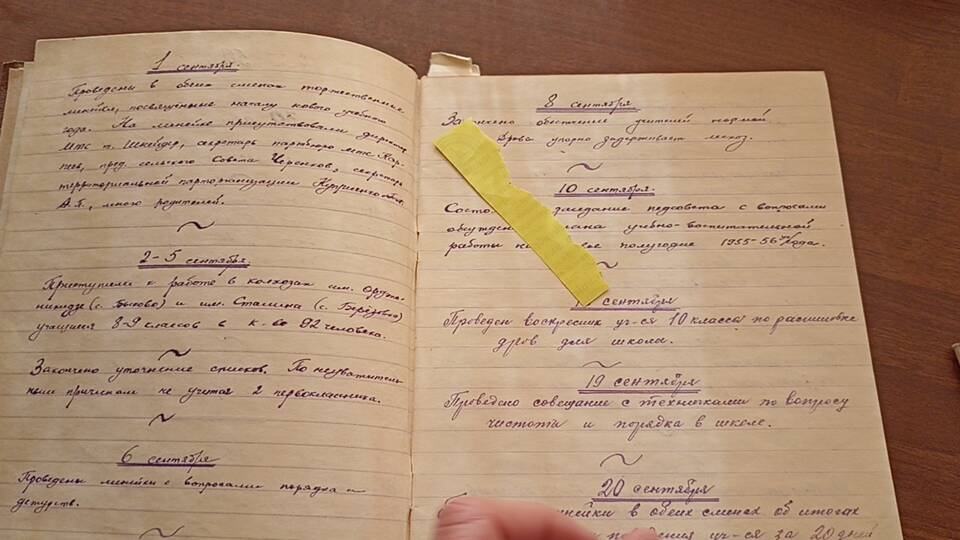 1 сентября.
Проведены в обеих сменах торжественные
линейки, посвящённые началу нового учебного
года. На линейке присутствовали директор
МТС т. Шнейдер, секретарь партбюро МТС
пред. сельского Совета Черенков, секретарь
территориальной парторганизации
А.Я., много родителей.
~
2-5 сентября.
Приступили к работе в колхозах им. Орджо-
никидзе (с. Быково) и им. Сталина (с. Берёзовка)
учащиеся 8-9 классов в к-ве 92 человека.
~
Закончено уточнение списков. По неуважитель-
ным причинам не учатся 2 первоклассника.
~
6 сентября
Проведены линейки с вопросами порядка и
дежурств.
~
8 сентября
учителей нормой
Дрова упорно задерживает лесхоз.
~
10 сентября.
заседание педсовета с вопросами
учебно-воспитательной
работы на полугодие 1955-56 уч. года.
~
сентября
Проведён воскресник уч-ся 10 класса по распиловке
дров для школы.
~
19 сентября
Проведено совещание с техничками по вопросу
чистоты и порядка в школе.
~
20 сентября
линейки в обеих сменах об итогах
поведения уч-ся за 20 дней